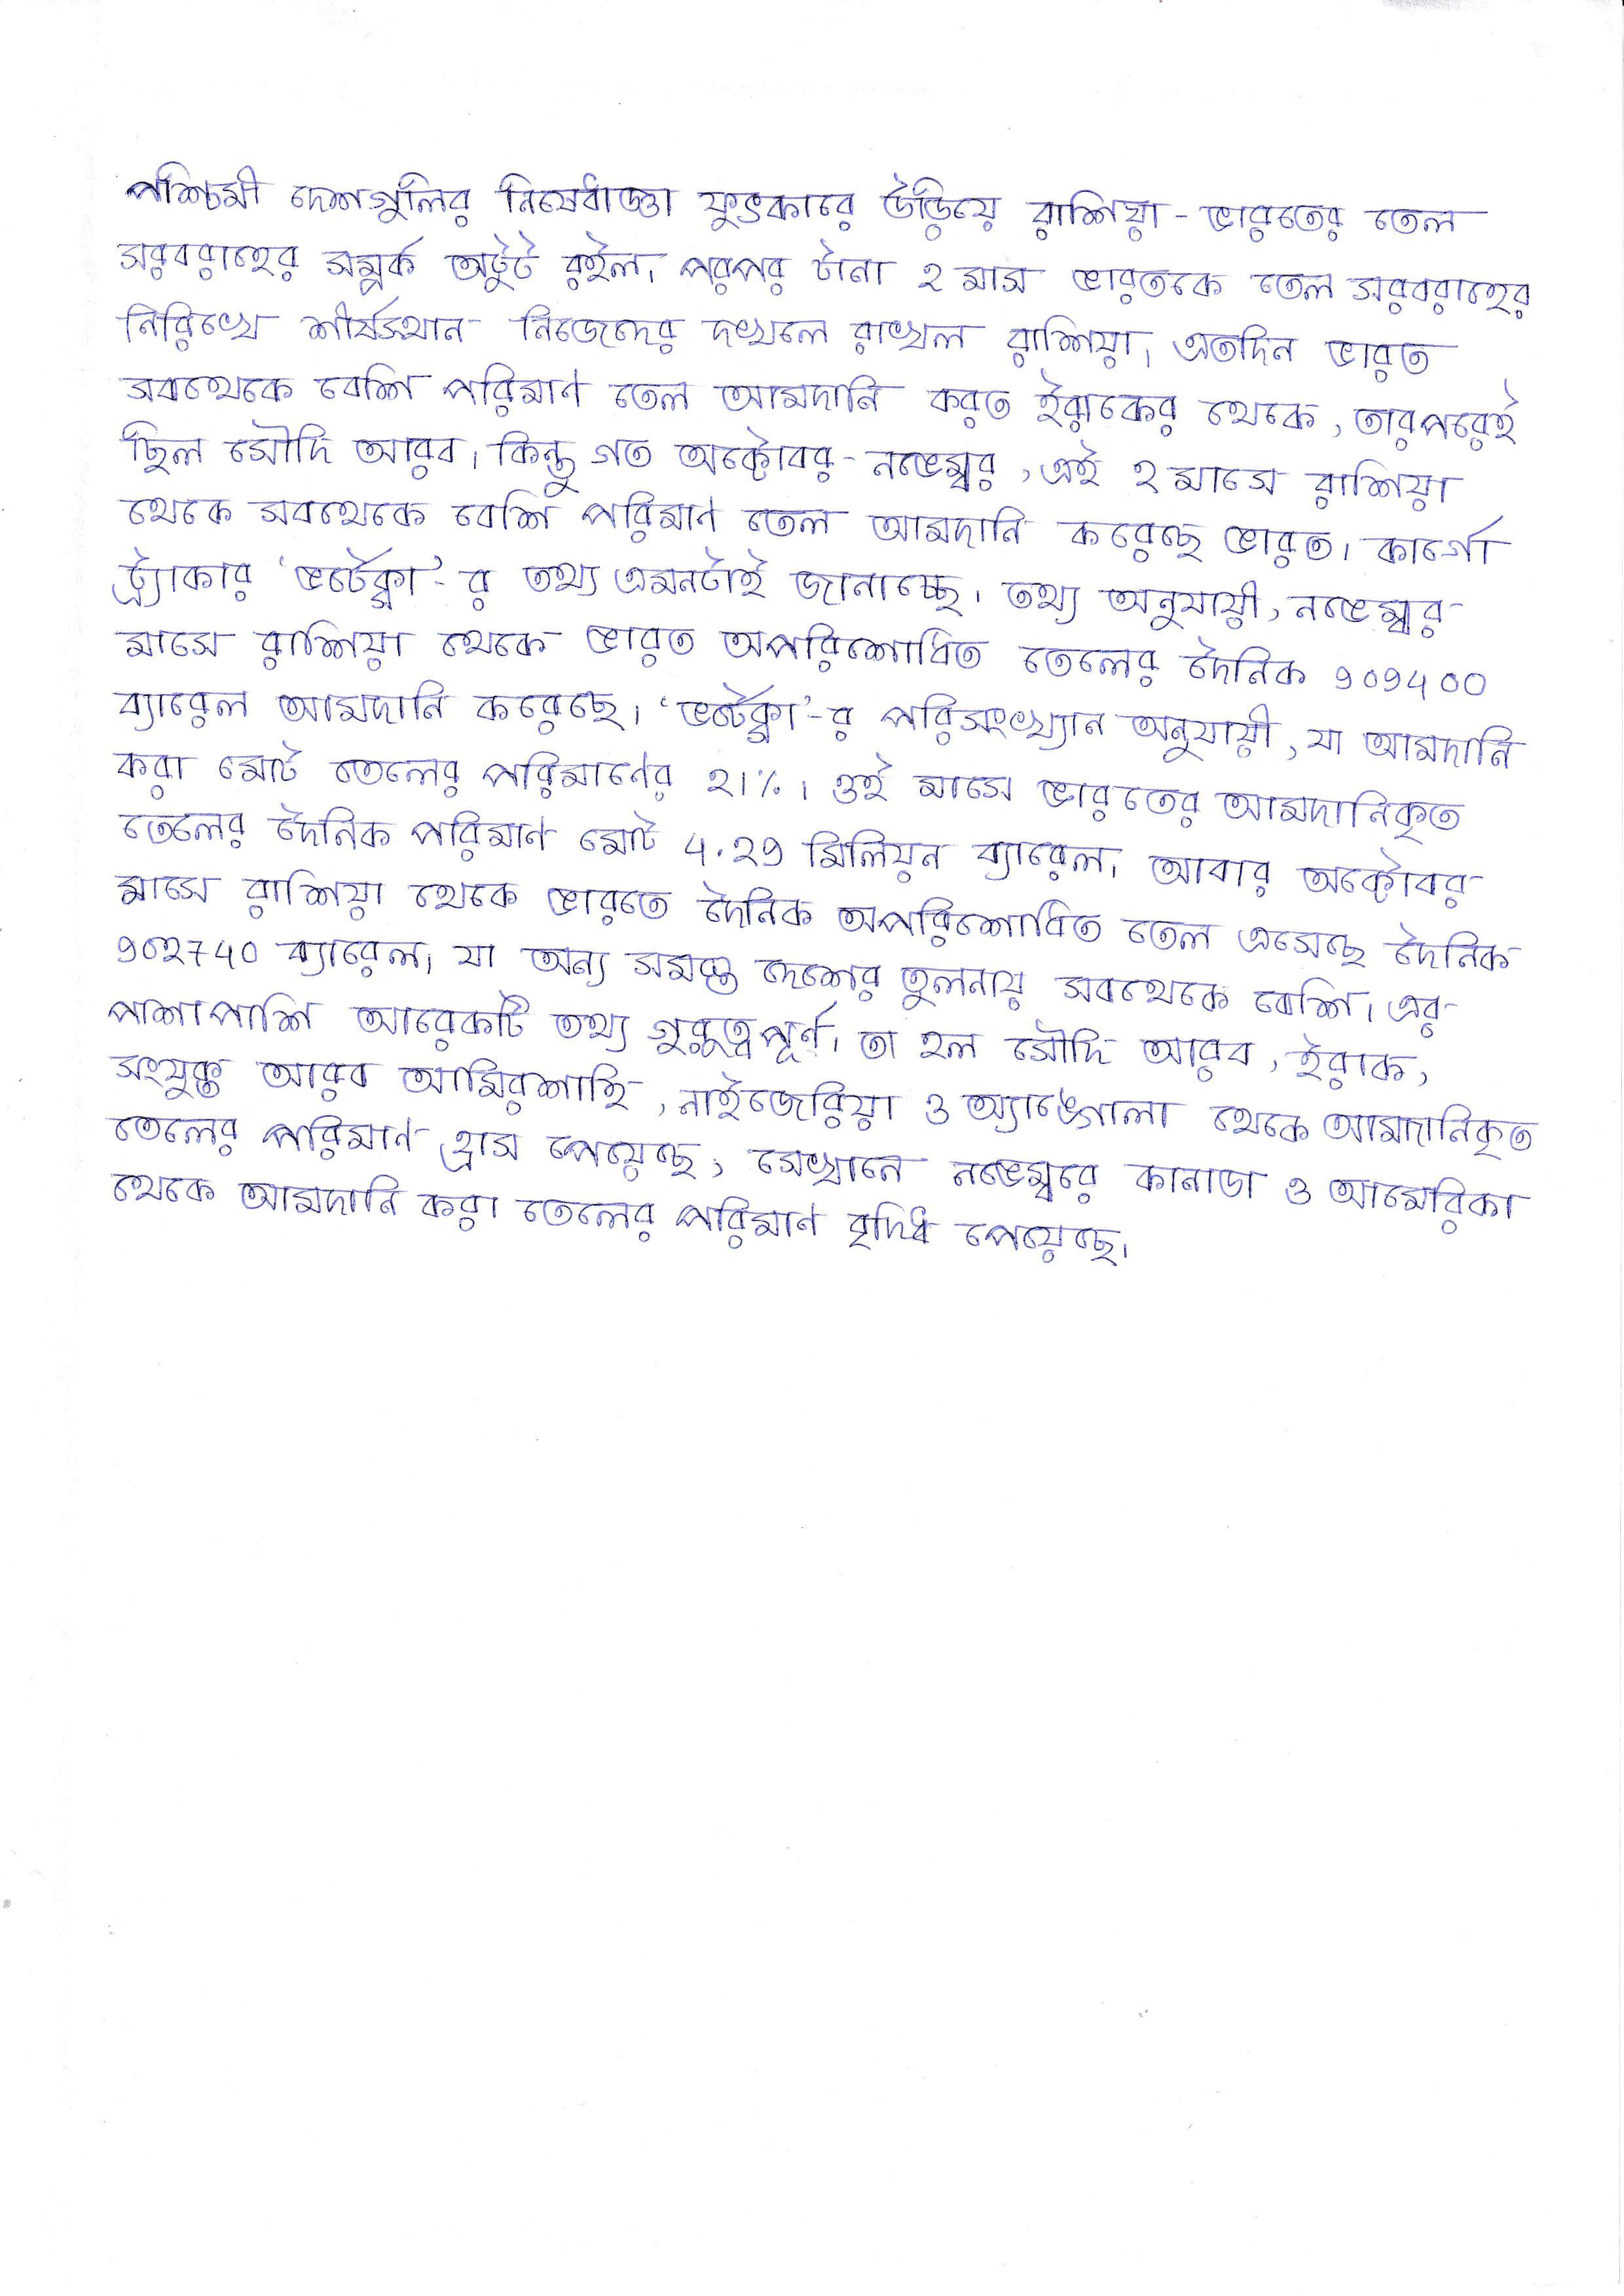 পশ্চিমী দেশগুলির নিষেধাজ্ঞা ফুৎকারে উড়িয়ে রাশিয়া - ভারতের তেল
সরবরাহের সম্পর্ক অটুট রইল। পরপর টানা 2 মাস ভারতকে তেল সরবরাহের
নিরিখে শীর্ষস্থান নিজেদের দখলে রাখল রাশিয়া। এতদিন ভারত
সবথেকে বেশি পরিমাণ তেল আমদানি করত ইরাকের থেকে, তারপরেই
ছিল সৌদি আরব। কিন্তু গত অক্টোবর - নভেম্বর, এই 2 মাসে রাশিয়া
থেকে সবথেকে বেশি পরিমাণ তেল আমদানি করেছে ভারত। কার্গো
ট্র্যাকার ‘ভর্টেক্সা’-র তথ্য এমনটাই জানাচ্ছে। তথ্য অনুযায়ী, নভেম্বর
মাসে রাশিয়া থেকে ভারত অপরিশোধিত তেলের দৈনিক 909400
ব্যারেল আমদানি করেছে। ‘ভর্টেক্সা’-র পরিসংখ্যান অনুযায়ী, যা আমদানি
করা মোট তেলের পরিমাণের 21%। ওই মাসে ভারতের আমদানিকৃত
তেলের দৈনিক পরিমাণ মোট 4.29 মিলিয়ন ব্যারেল। আবার অক্টোবর
মাসে রাশিয়া থেকে ভারতে দৈনিক অপরিশোধিত তেল এসেছে দৈনিক
902740 ব্যারেল। যা অন্য সমস্ত দেশের তুলনায় সবথেকে বেশি। এর
পাশাপাশি আরেকটি তথ্য গুরুত্বপূর্ণ। তা হল সৌদি আরব, ইরাক,
সংযুক্ত আরব আমিরশাহি, নাইজেরিয়া ও অ্যাঙ্গোলা থেকে আমদানিকৃত
তেলের পরিমাণ হ্রাস পেয়েছে, সেখানে নভেম্বরে কানাডা ও আমেরিকা
থেকে আমদানি করা তেলের পরিমাণ বৃদ্ধি পেয়েছে।